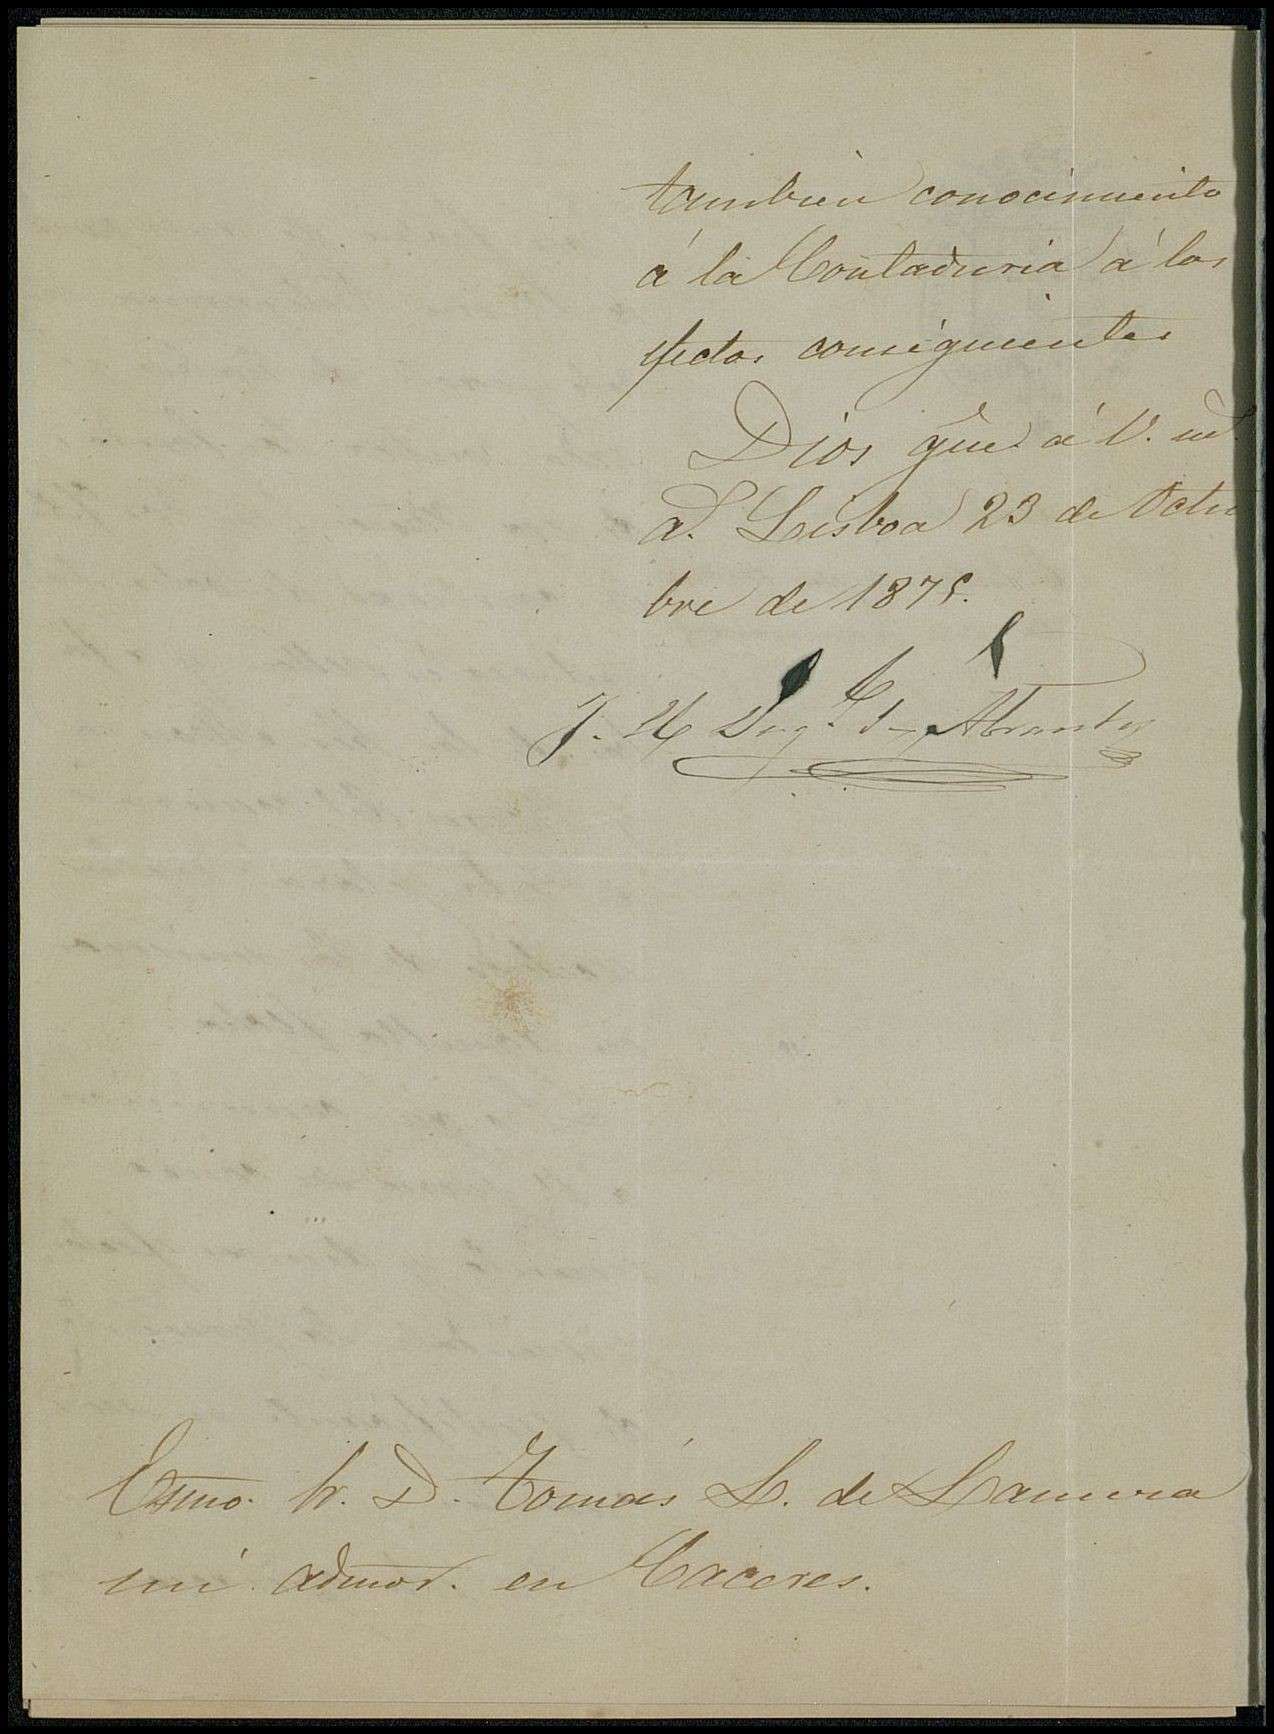 también conocimiento
á la Contaduria á los
efectos consiguientes
Dios gue. á V. md.
as. Lisboa 23 de Octu
bre de 1875.
de Abrantes
Exmo. Sr. D. Tomás L. de
mi admor. en Caceres.